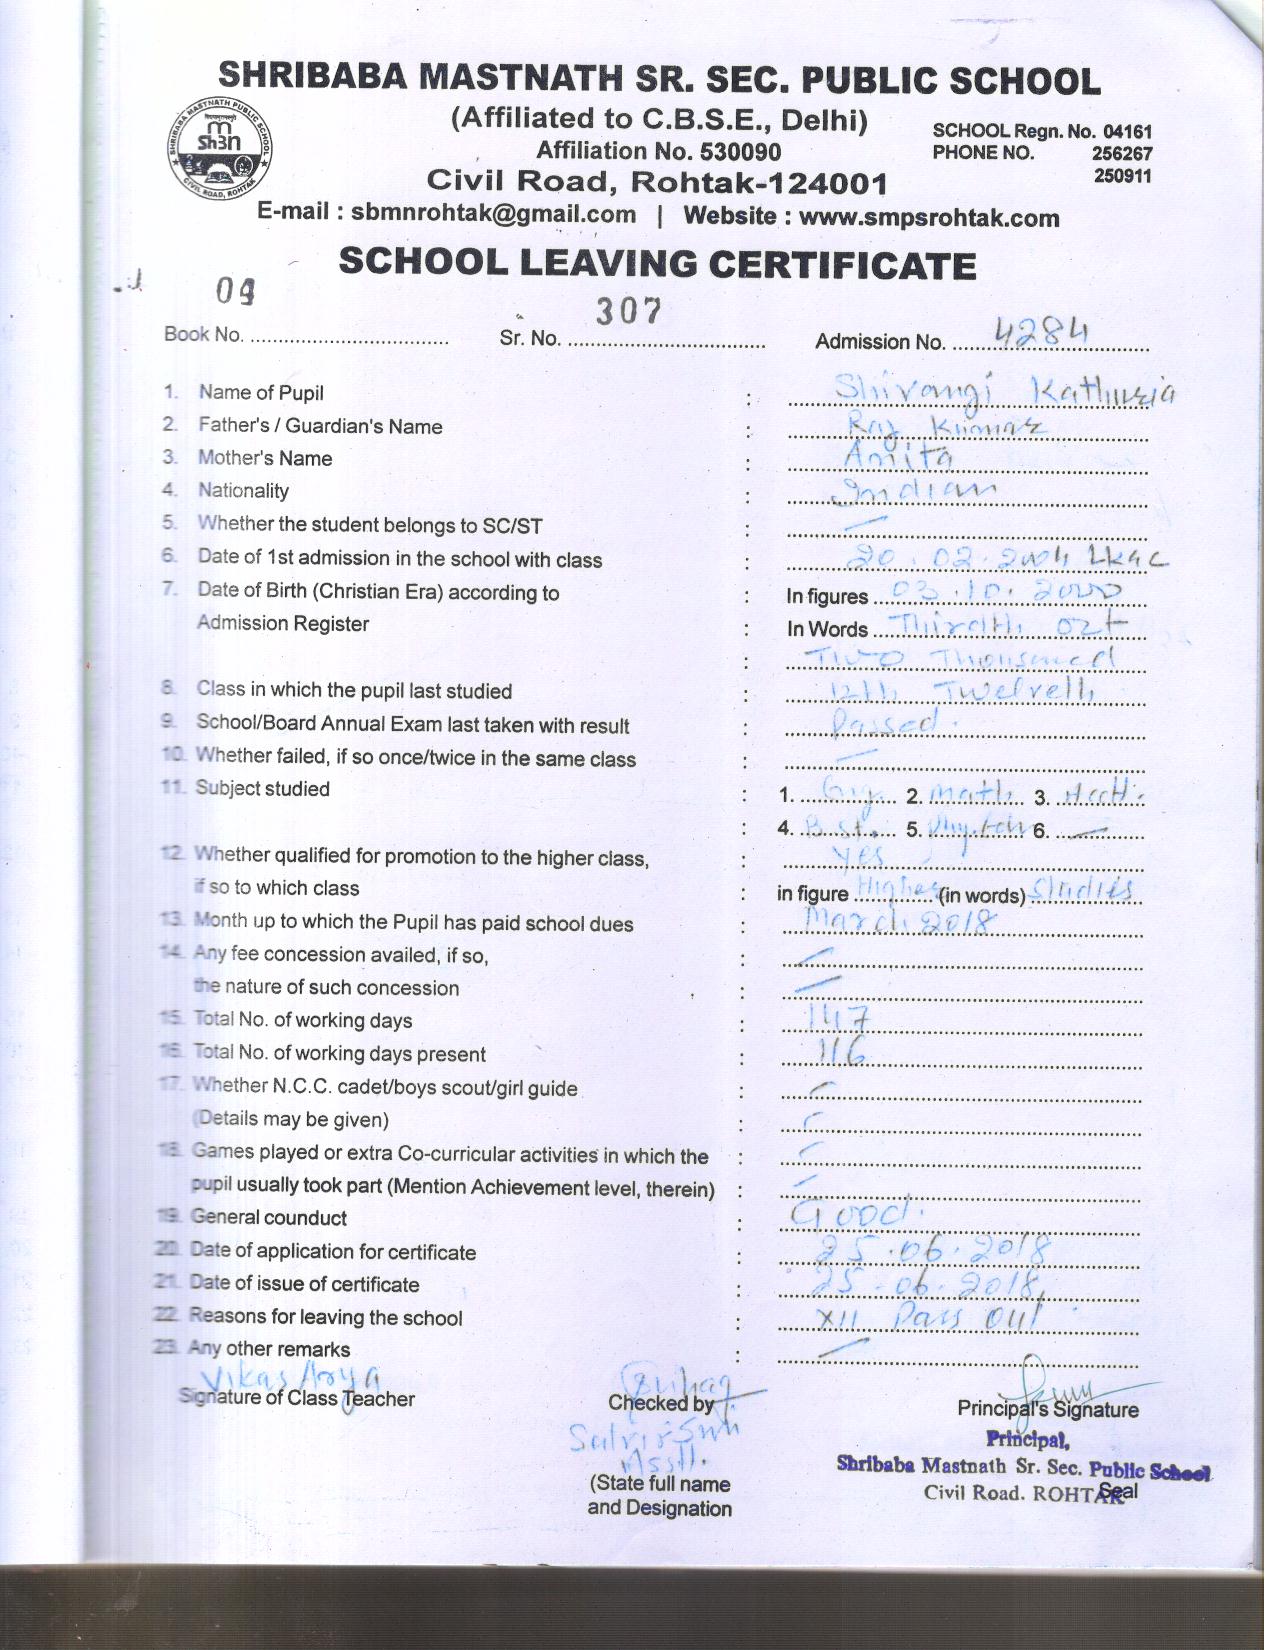 SHRIBABA MASTNATH SR. SEC. PUBLIC SCHOOL
(Affiliated to C.B.S.E., Delhi)
Affiliation No. 530090
SCHOOL Regn. No. 04161
PHONE NO. 256267
250911
SHRIBABA MASTNATH PUBLIC SCHOOL
CIVIL ROAD, ROHTAK
Civil Road, Rohtak-124001
E-mail : sbmnrohtak@gmail.com | Website : www.smpsrohtak.com
SCHOOL LEAVING CERTIFICATE
Book No. 09 Sr. No. 307 Admission No. 4284
1. Name of Pupil : Shivangi Kathuria
2. Father's / Guardian's Name : Raj Kumar
3. Mother's Name : Anita
4. Nationality : Indian
5. Whether the student belongs to SC/ST : —
6. Date of 1st admission in the school with class : 20.02.2004 LKG C
7. Date of Birth (Christian Era) according to : In figures 03.10.2000
Admission Register : In Words Thirdth Oct
: Two Thousand
8. Class in which the pupil last studied : 12th Twelveth
9. School/Board Annual Exam last taken with result : Passed.
10. Whether failed, if so once/twice in the same class : —
11. Subject studied : 1. Eng. 2. Math 3. Acctt.
: 4. B.St. 5. 6. —
12. Whether qualified for promotion to the higher class, : Yes
if so to which class : in figure Higher (in words) Studies
13. Month up to which the Pupil has paid school dues : March 2018
14. Any fee concession availed, if so, : —
the nature of such concession : —
15. Total No. of working days : 147
16. Total No. of working days present : 116
17. Whether N.C.C. cadet/boys scout/girl guide : —
(Details may be given) : —
18. Games played or extra Co-curricular activities in which the : —
pupil usually took part (Mention Achievement level, therein) : —
19. General counduct : Good.
20. Date of application for certificate : 25.06.2018
21. Date of issue of certificate : 25.06.2018
22. Reasons for leaving the school : XII Pass Out
23. Any other remarks : —
Vikas Arya
Signature of Class Teacher Checked by Principal's Signature
Principal,
Shribaba Mastnath Sr. Sec. Public School
Civil Road. ROHTAK Seal
(State full name
and Designation